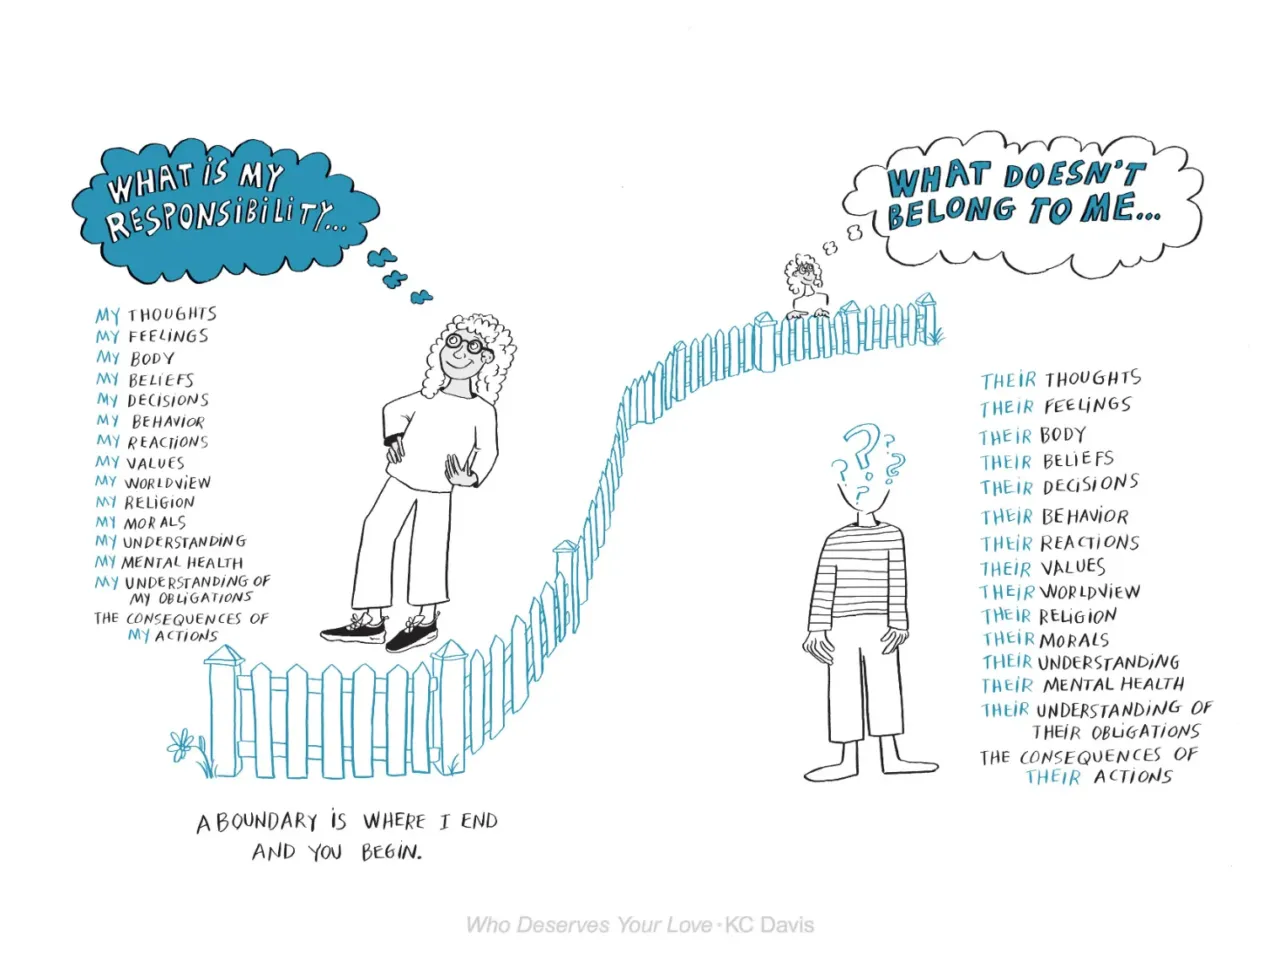 WHAT IS MY
RESPONSIBILITY...
MY THOUGHTS
MY FEELINGS
MY BODY
MY BELIEFS
MY DECISIONS
MY BEHAVIOR
MY REACTIONS
MY VALUES
MY WORLDVIEW
MY RELIGION
MY MORALS
MY UNDERSTANDING
MY MENTAL HEALTH
MY UNDERSTANDING OF
MY OBLIGATIONS
THE CONSEQUENCES OF
MY ACTIONS
A BOUNDARY IS WHERE I END
AND YOU BEGIN.
WHAT DOESN'T
BELONG TO ME...
THEIR THOUGHTS
THEIR FEELINGS
THEIR BODY
THEIR BELIEFS
THEIR DECISIONS
THEIR BEHAVIOR
THEIR REACTIONS
THEIR VALUES
THEIR WORLDVIEW
THEIR RELIGION
THEIR MORALS
THEIR UNDERSTANDING
THEIR MENTAL HEALTH
THEIR UNDERSTANDING OF
THEIR OBLIGATIONS
THE CONSEQUENCES OF
THEIR ACTIONS
Who Deserves Your Love · KC Davis